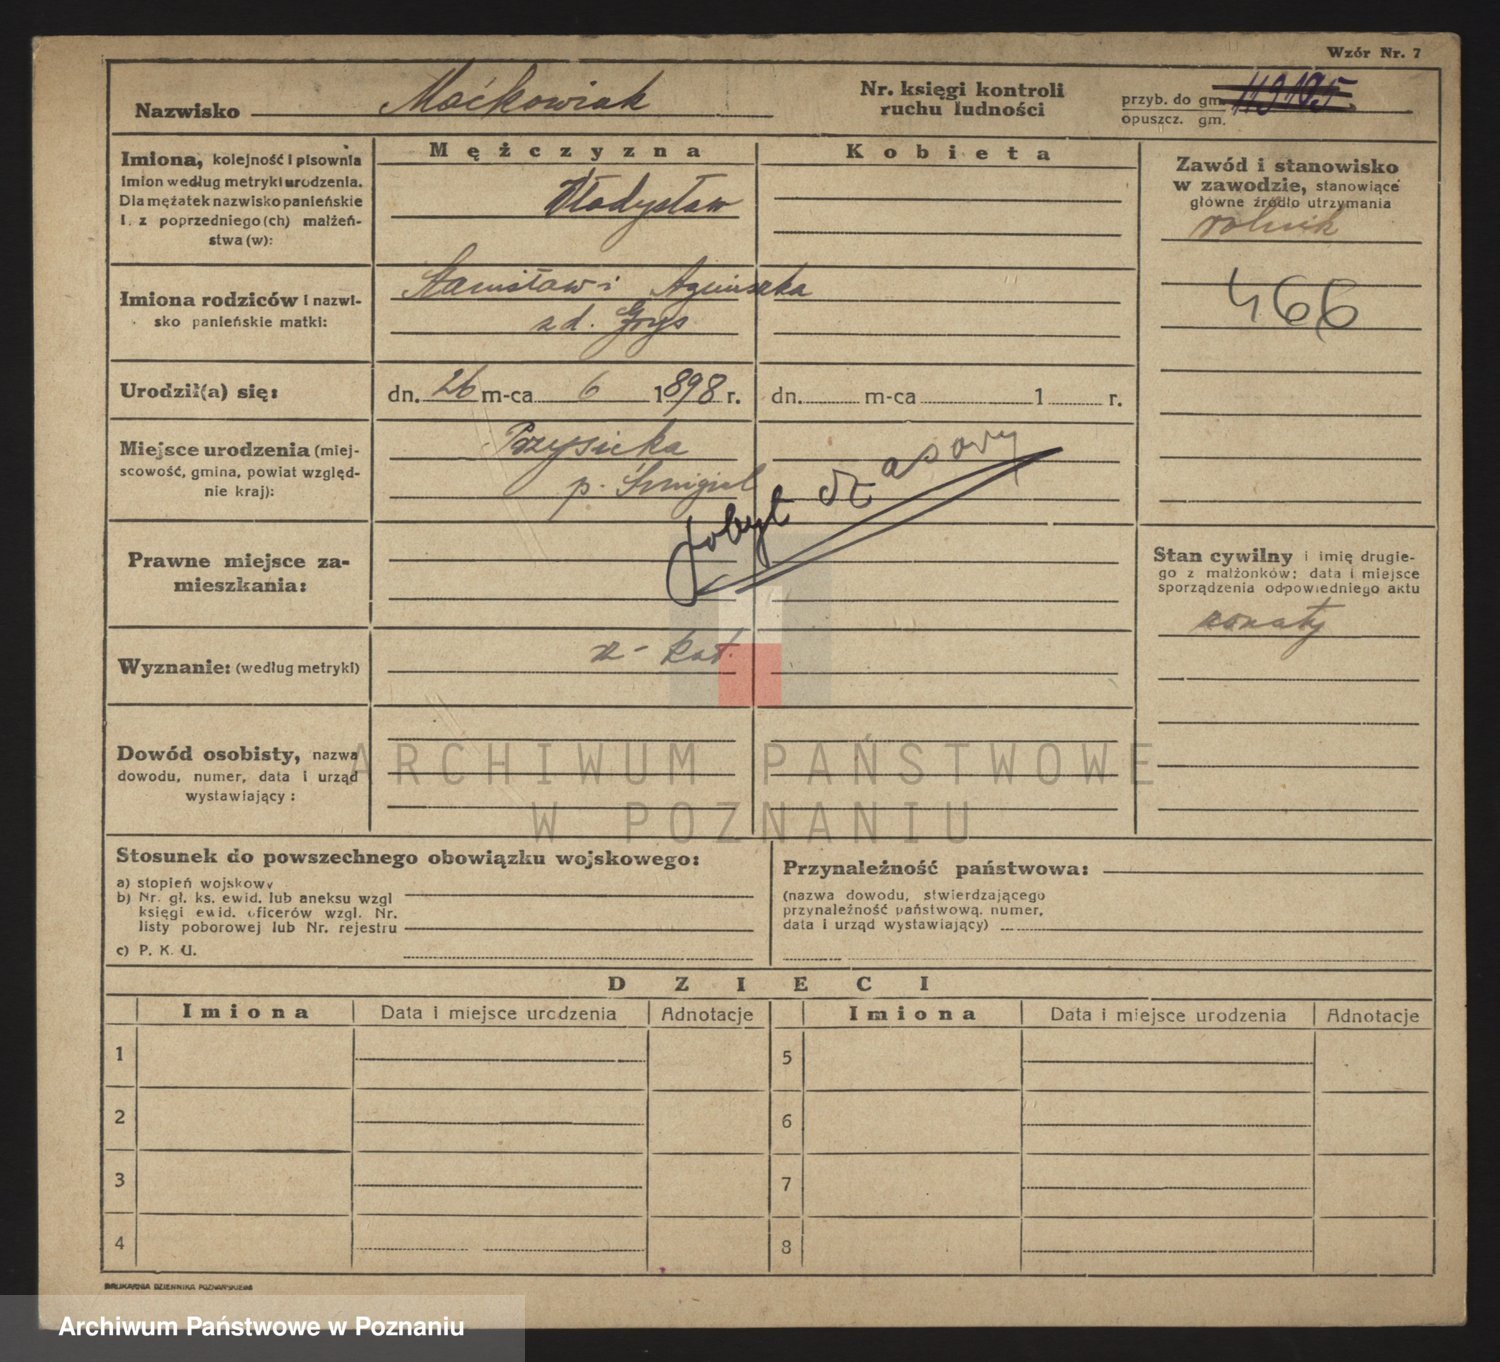 Wzór Nr. 7
Nazwisko Maćkowiak
Nr. księgi kontroli
ruchu ludności
przyb. do gm. 113185
opuszcz. gm.
Imiona, kolejność i pisownia
imion według metryki urodzenia.
Dla mężatek nazwisko panieńskie
i. z poprzedniego (ch) małżeń-
stwa (w):
Mężczyzna
Władysław
Kobieta
Zawód i stanowisko
w zawodzie, stanowiące
główne źródło utrzymania
rolnik
466
Imiona rodziców i nazwi-
sko panieńskie matki:
Stanisław i Agnieszka
z d. Grys
Urodził(a) się:
dn. 26 m-ca 6 1898 r.
dn. m-ca 1 r.
Miejsce urodzenia (miej-
scowość, gmina, powiat względ-
nie kraj):
Przysieka
p. Śmigiel
pobyt czasowy
Prawne miejsce za-
mieszkania:
Stan cywilny i imię drugie-
go z małżonków: data i miejsce
sporządzenia odpowiedniego aktu
żonaty
Wyznanie: (według metryki)
rz-kat.
Dowód osobisty, nazwa
dowodu, numer, data i urząd
wystawiający:
ARCHIWUM PAŃSTWOWE
W POZNANIU
Stosunek do powszechnego obowiązku wojskowego:
a) stopień wojskowy
b) Nr. gł. ks. ewid. lub aneksu wzgl
księgi ewid. oficerów wzgl. Nr.
listy poborowej lub Nr. rejestru
c) P. K. U.
Przynależność państwowa:
(nazwa dowodu, stwierdzającego
przynależność państwową, numer,
data i urząd wystawiający)
DZIECI
Imiona Data i miejsce urodzenia Adnotacje Imiona Data i miejsce urodzenia Adnotacje
1 5
2 6
3 7
4 8
DRUKARNIA DZIENNIKA POZNAŃSKIEGO
Archiwum Państwowe w Poznaniu